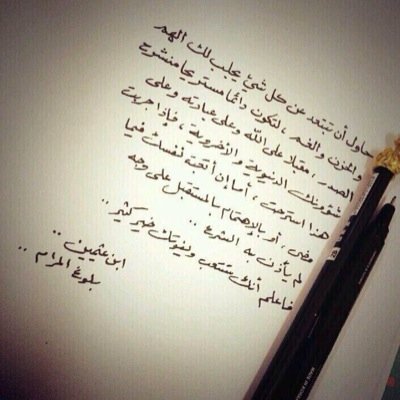 حاول أن تبتعد عن كل شيء يجلب لك الهم
والحزن والغم ، لتكون دائما مستريحا منشرح
الصدر ، مقبلا على الله وعلى عبادته وعلى
شؤونك الدنيوية والأخروية ، فإذا جربت
هذا استرحت ، أما إن أتعبت نفسك فيما
مضى ، أو بالاهتمام بالمستقبل على وجه
لم يأذن به الشرع ..
فاعلم أنك ستتعب ويفوتك خير كثير ..
ابن عثيمين ..
بلوغ المرام ..